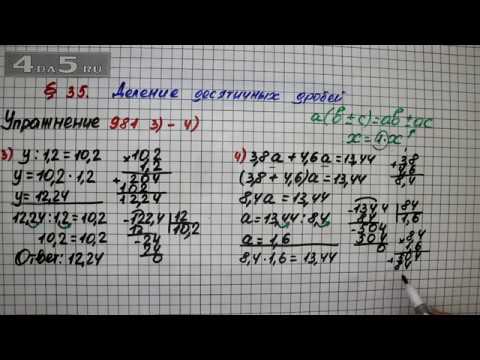 4DA5.RU
§ 35. Деление десятичных дробей
a(b±c)=ab±ac
x=1·x
Упражнение 981 3)-4)
3) y:1,2=10,2
y=10,2·1,2
y=12,24
12,24:1,2=10,2
10,2=10,2
Ответ: 12,24
×10,2
1,2
+204
102
12,24
-122,4 | 12
12 | 10,2
-24
24
0
4) 3,8a+4,6a=13,44
(3,8+4,6)a=13,44
8,4a=13,44
a=13,44:8,4
a=1,6
8,4·1,6=13,44
+3,8
4,6
8,4
-134,4 | 84
84 | 1,6
-504
504
0
×8,4
1,6
+504
84